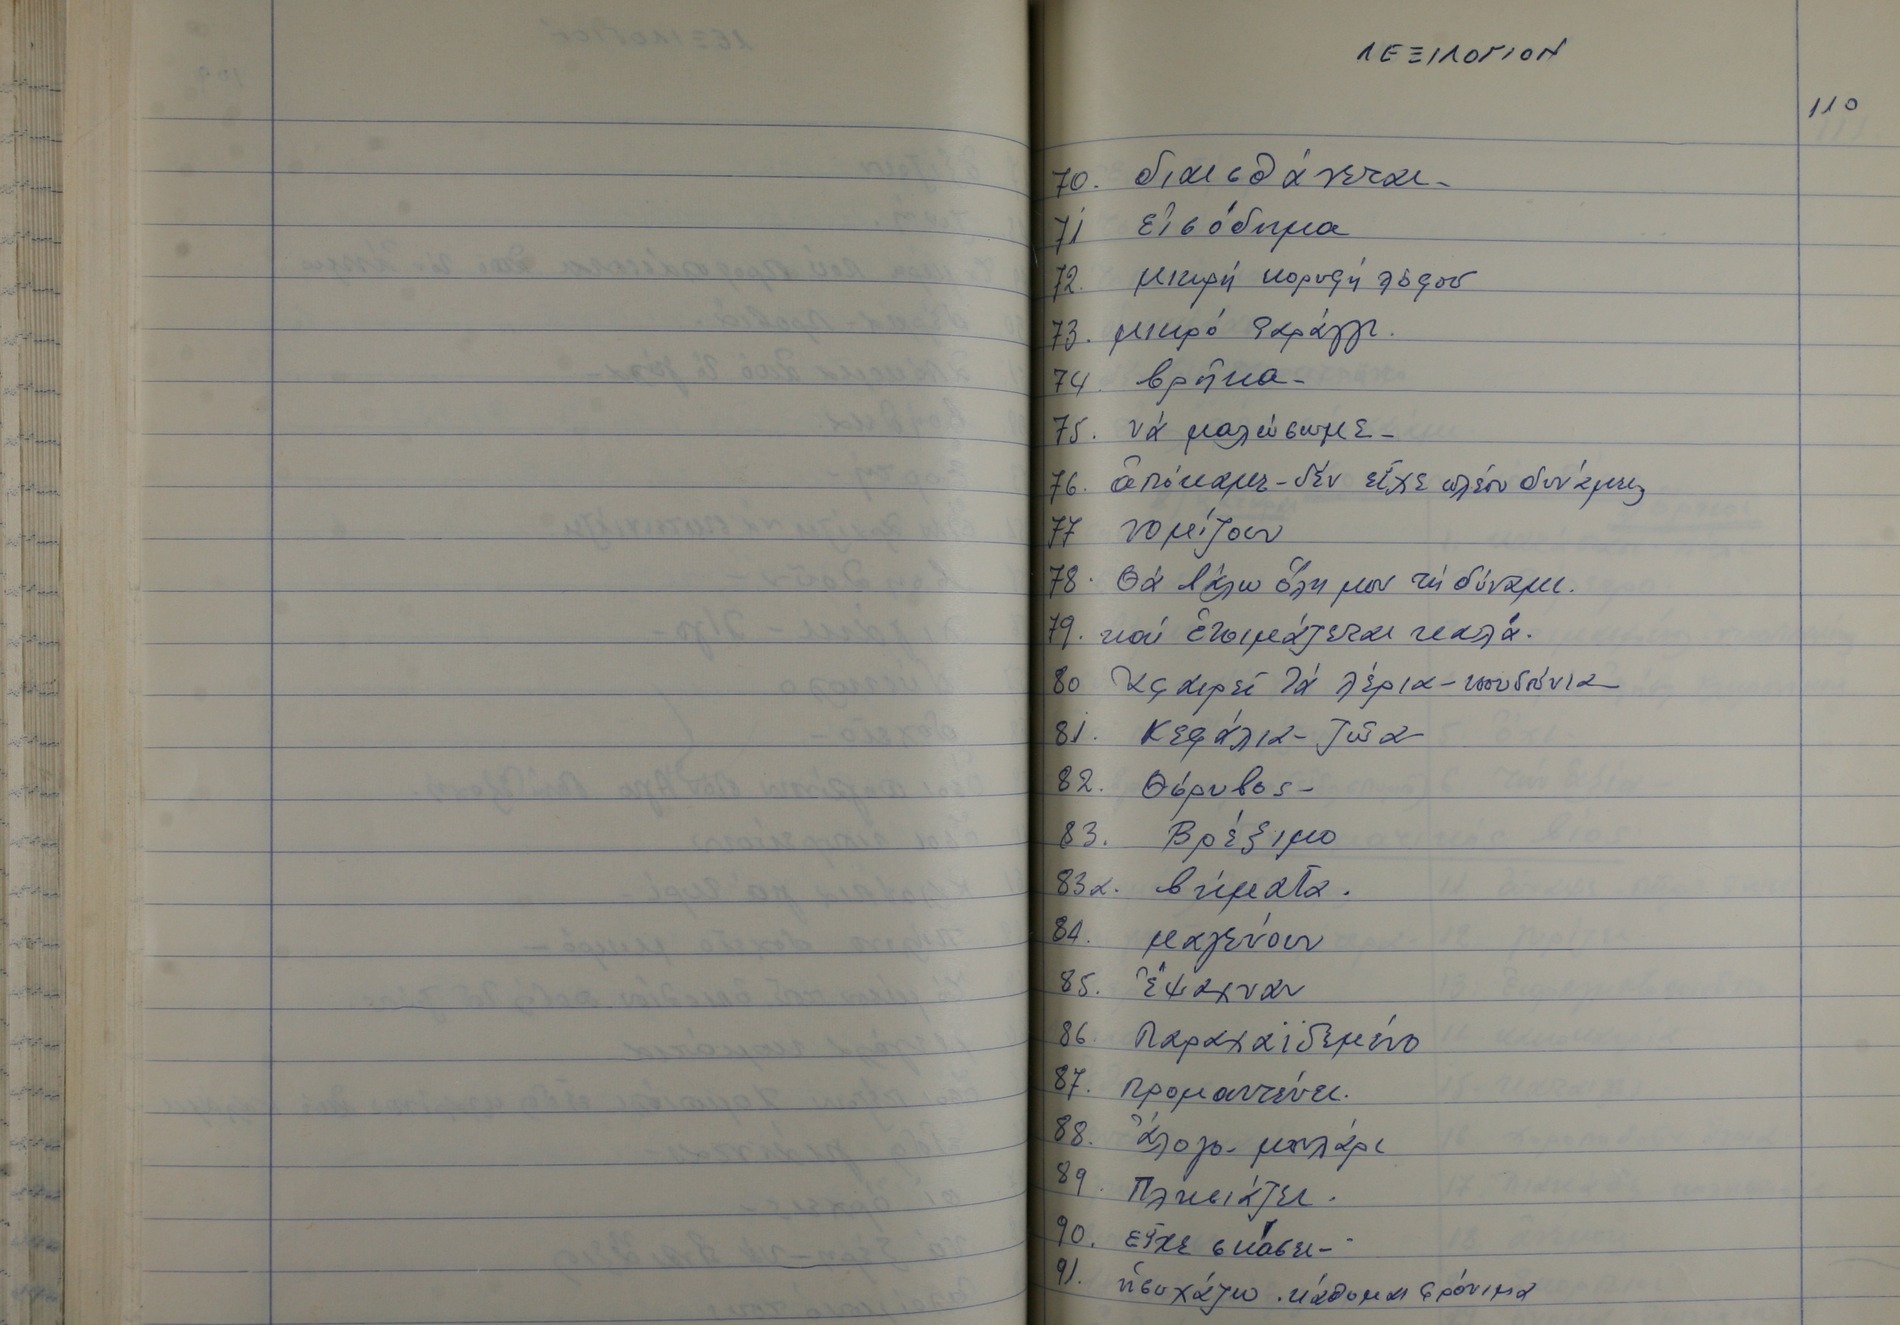 ΛΕΞΙΛΟΓΙΟΝ
110
70. διαισθάνεται -
71 εἰσόδημα
72. μικρή κορυφή λόφου
73. μικρό φαράγγι.
74. βρῆκα -
75. νά μαλώσωμε -
76. ἀπόκαμε - δέν εἶχε πλέον δυνάμεις
77 νομίζουν
78. Θά βάλω ὅλη μου τή δύναμι.
79. καί ἑτοιμάζεται καλά.
80 Ἀφαιρεῖ τά λέρια - κουδούνια
81. Κεφάλια - ζῶα
82. Θόρυβος -
83. Βρέξιμο
83α. βήματα.
84. μαγεύουν
85. ἔψαχναν
86. Παραχαϊδεμένο
87. προμαντεύει.
88. ἄλογο - μουλάρι
89. Πλησιάζει.
90. εἶχε σκάσει -
91. ἡσυχάζω . κάθομαι φρόνιμα